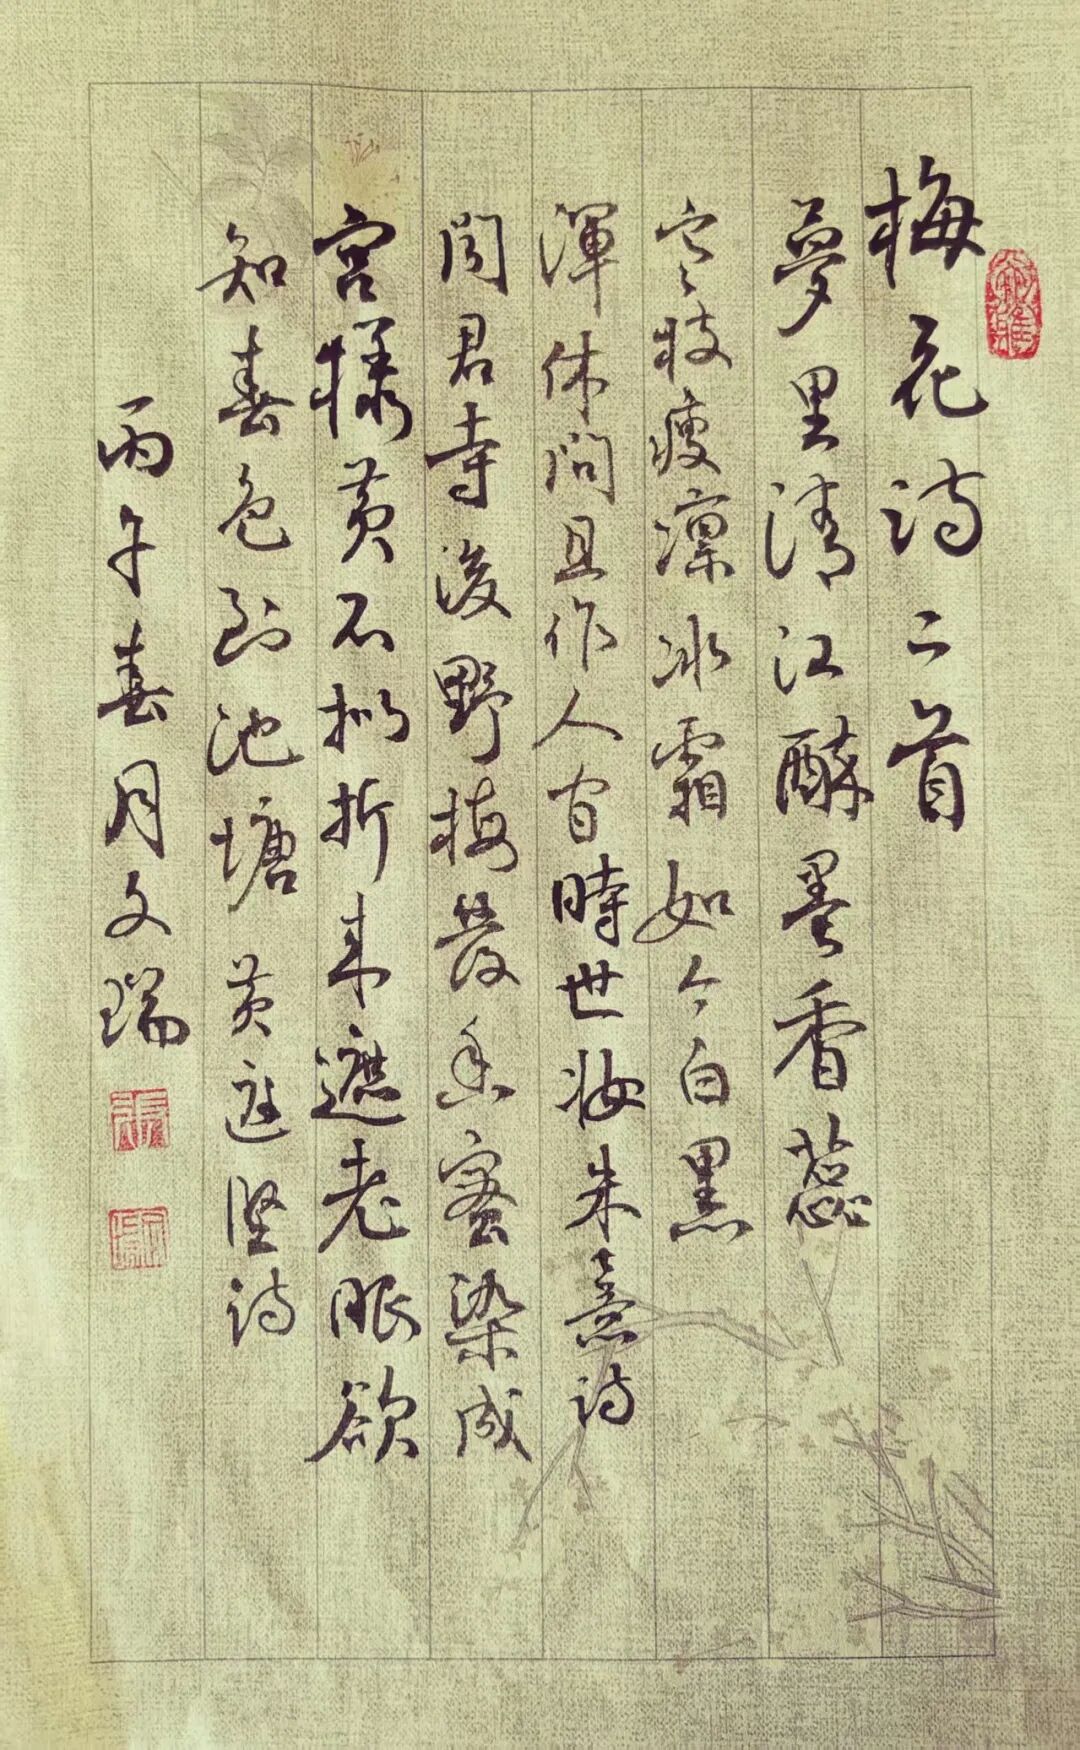 梅花诗二首
夢里清江醉墨香蕊
寒枝瘦凛冰霜如今白黑
渾休問且作人间時世妝朱熹诗
聞君寺後野梅發香蜜染成
宫樣黄不拟折来遮老眼欲
知春色到池塘 黄庭坚诗
丙午春月文瑞